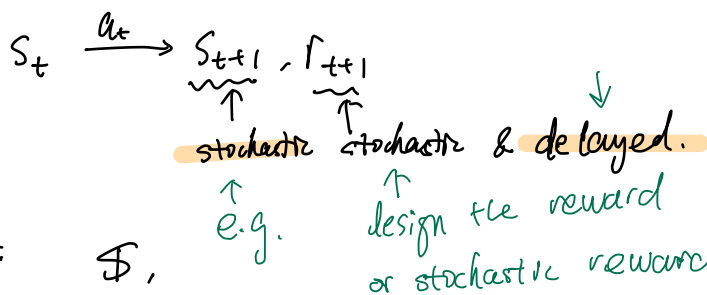 S_t —a_t→ S_{t+1}, r_{t+1}
stochastic stochastic & delayed.
e.g. design the reward
$, or stochastic reward